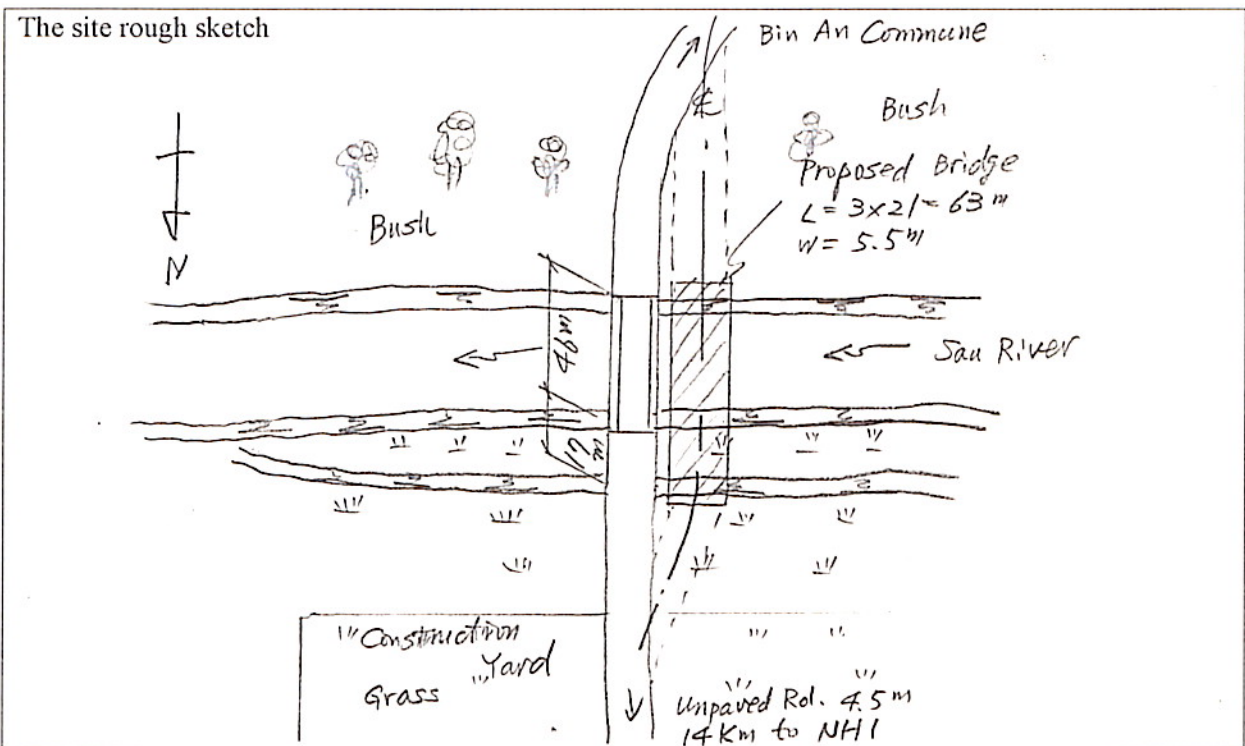 The site rough sketch
Bin An Commune
℄
Bush
Proposed Bridge
L = 3×21 = 63 m
W = 5.5 m
Bush
N
46m
17m
San River
Construction
Yard
Grass
Unpaved Rd. 4.5 m
14 Km to NH1